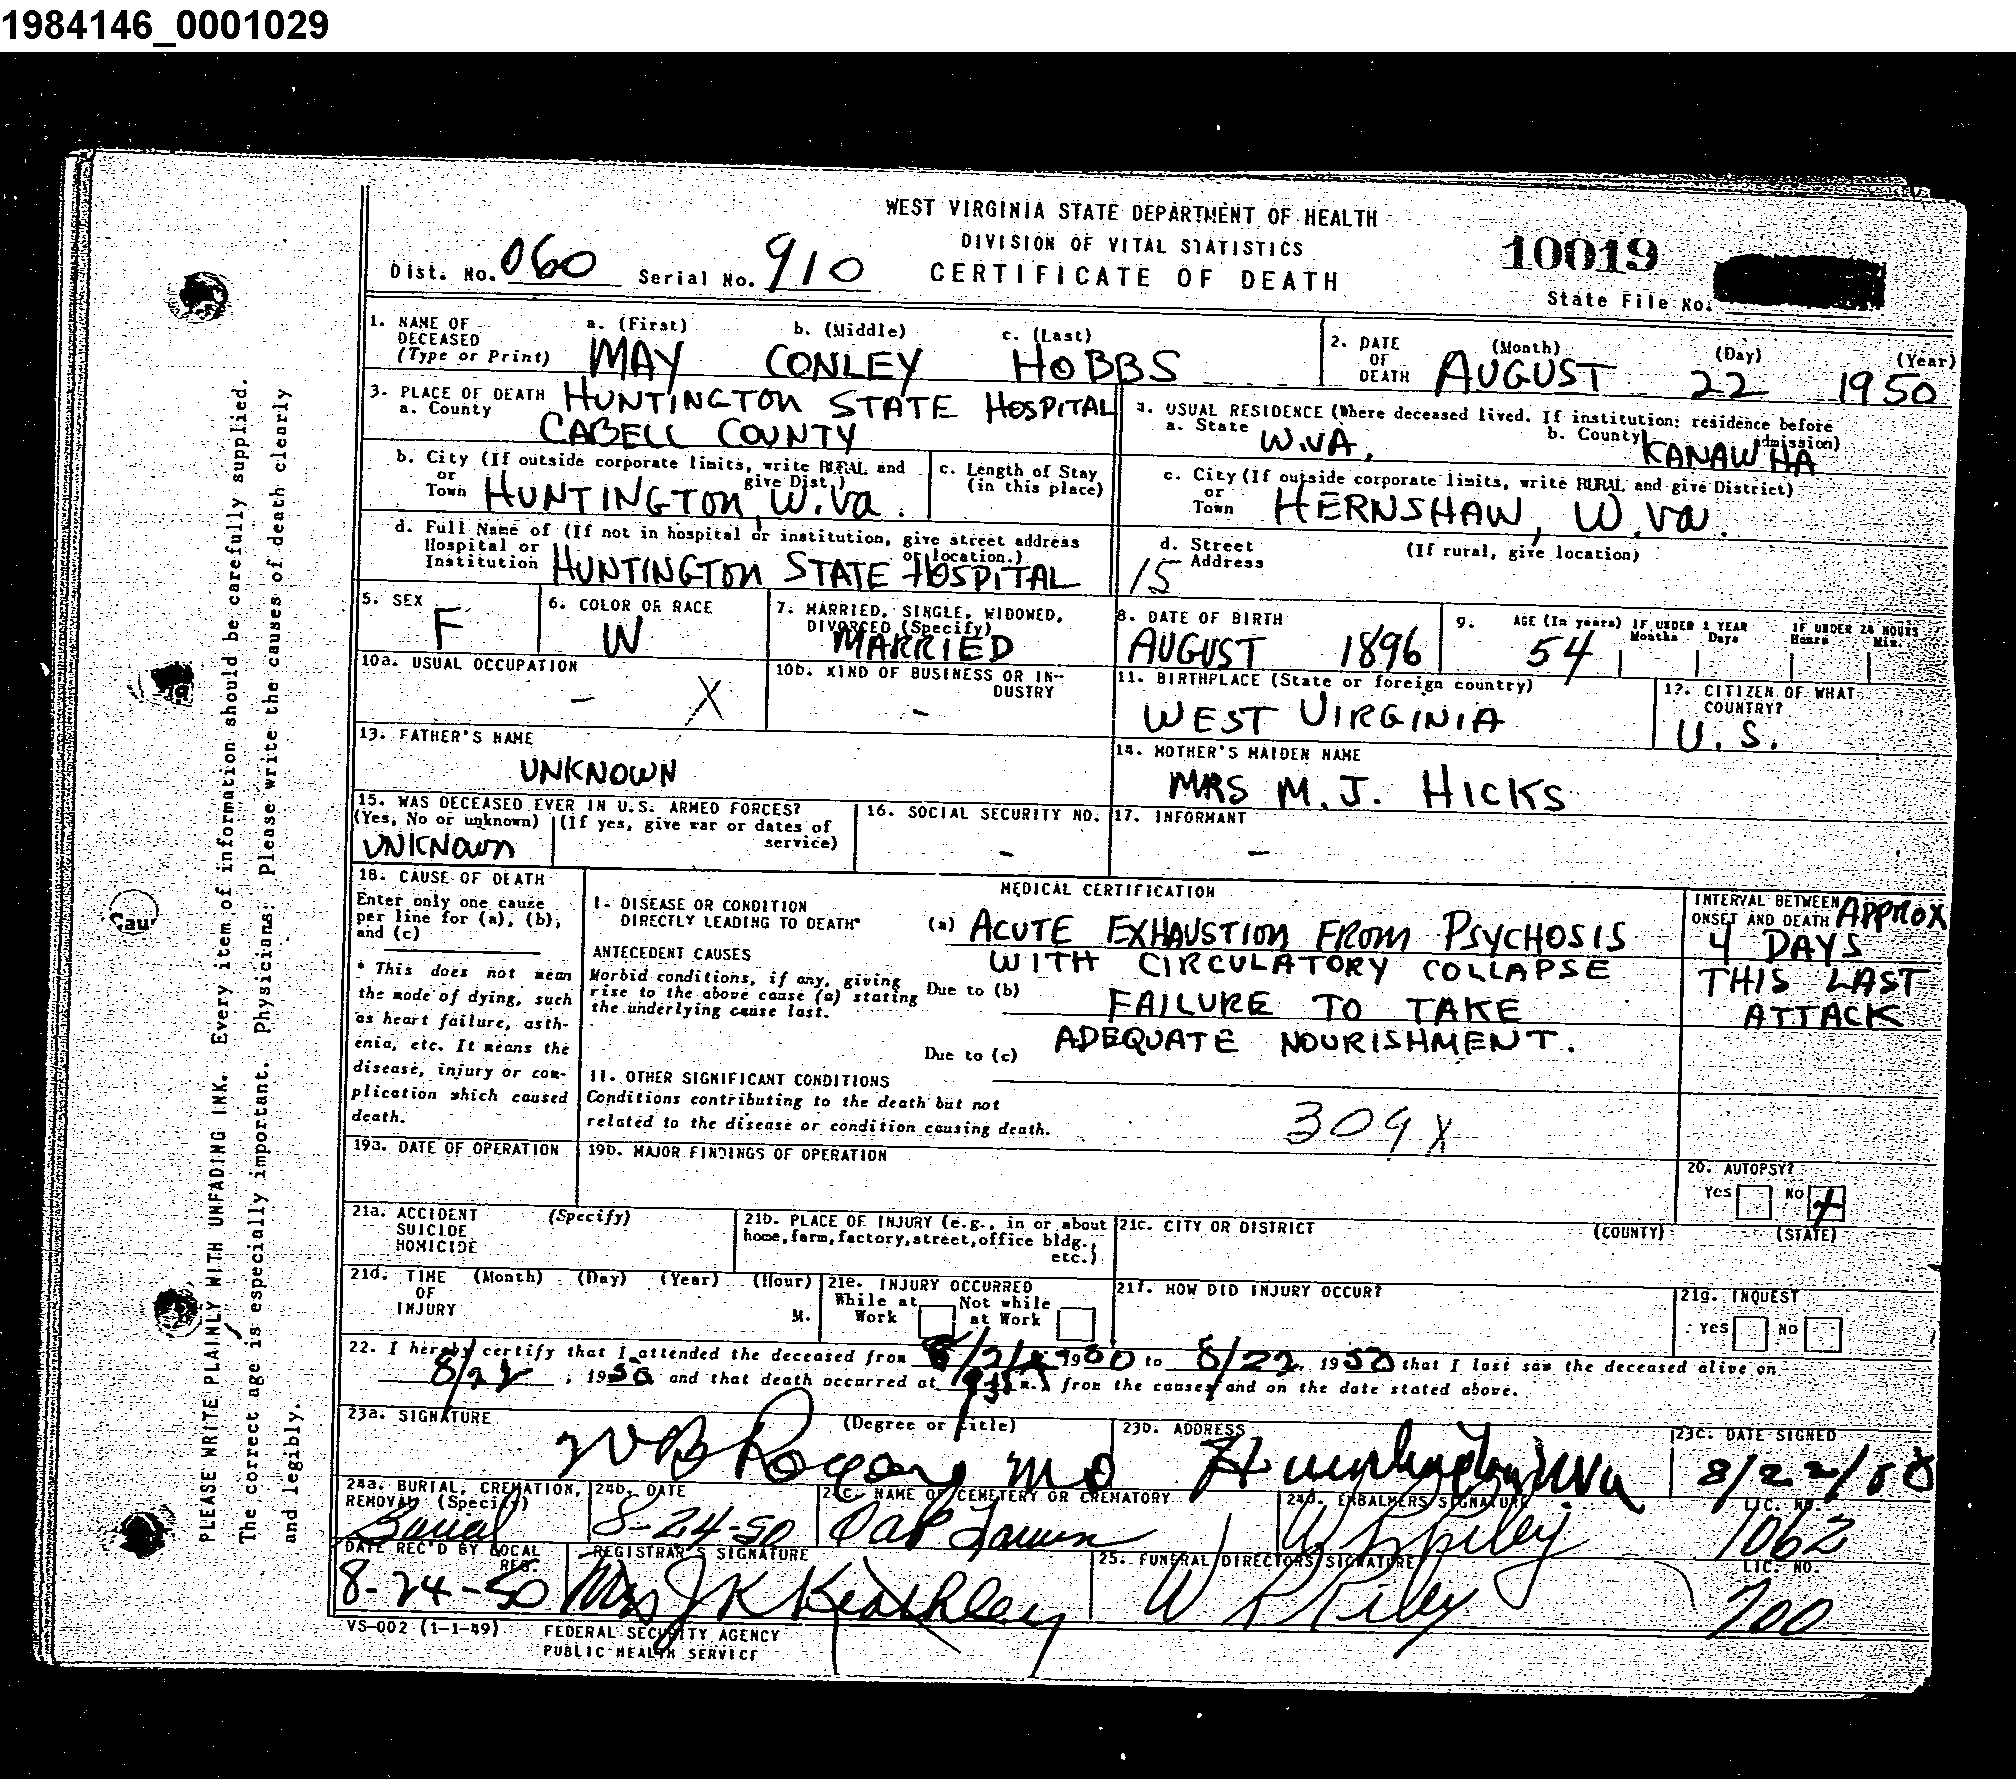 1984146_0001029
WEST VIRGINIA STATE DEPARTMENT OF HEALTH
DIVISION OF VITAL STATISTICS
CERTIFICATE OF DEATH
Dist. No. 060 Serial No. 910
10019
State File No.
1. NAME OF DECEASED (Type or Print) a. (First) b. (Middle) c. (Last)
MAY CONLEY HOBBS
2. DATE OF DEATH (Month) (Day) (Year)
AUGUST 22 1950
3. PLACE OF DEATH HUNTINGTON STATE HOSPITAL
a. County CABELL COUNTY
4. USUAL RESIDENCE (Where deceased lived. If institution: residence before admission)
a. State W.VA, b. County KANAWHA
b. City (If outside corporate limits, write RURAL and give Dist.)
or Town HUNTINGTON, W.Va.
c. Length of Stay (in this place)
c. City (If outside corporate limits, write RURAL and give District)
or Town HERNSHAW, W.Va.
d. Full Name of (If not in hospital or institution, give street address or location.)
Hospital or Institution HUNTINGTON STATE HOSPITAL
d. Street Address (If rural, give location)
15
5. SEX F
6. COLOR OR RACE W
7. MARRIED, SINGLE, WIDOWED, DIVORCED (Specify) MARRIED
8. DATE OF BIRTH AUGUST 1896
9. AGE (In years) 54 IF UNDER 1 YEAR Months Days IF UNDER 24 HOURS Hours Min.
10a. USUAL OCCUPATION - X
10b. KIND OF BUSINESS OR INDUSTRY -
11. BIRTHPLACE (State or foreign country) WEST VIRGINIA
12. CITIZEN OF WHAT COUNTRY? U.S.
13. FATHER'S NAME UNKNOWN
14. MOTHER'S MAIDEN NAME MRS M.J. HICKS
15. WAS DECEASED EVER IN U.S. ARMED FORCES?
(Yes, No or unknown) (If yes, give war or dates of service)
UNKNOWN
16. SOCIAL SECURITY NO. -
17. INFORMANT -
18. CAUSE OF DEATH
Enter only one cause per line for (a), (b), and (c)
* This does not mean the mode of dying, such as heart failure, asthenia, etc. It means the disease, injury or complication which caused death.
MEDICAL CERTIFICATION
I. DISEASE OR CONDITION DIRECTLY LEADING TO DEATH*
(a) ACUTE EXHAUSTION FROM PSYCHOSIS
WITH CIRCULATORY COLLAPSE
ANTECEDENT CAUSES
Morbid conditions, if any, giving rise to the above cause (a) stating the underlying cause last.
Due to (b) FAILURE TO TAKE
ADEQUATE NOURISHMENT.
Due to (c)
INTERVAL BETWEEN ONSET AND DEATH APPROX
4 DAYS
THIS LAST
ATTACK
11. OTHER SIGNIFICANT CONDITIONS
Conditions contributing to the death but not related to the disease or condition causing death.
309X
19a. DATE OF OPERATION
19b. MAJOR FINDINGS OF OPERATION
20. AUTOPSY?
Yes No X
21a. ACCIDENT SUICIDE HOMICIDE (Specify)
21b. PLACE OF INJURY (e.g., in or about home, farm, factory, street, office bldg., etc.)
21c. CITY OR DISTRICT (COUNTY) (STATE)
21d. TIME OF INJURY (Month) (Day) (Year) (Hour) M.
21e. INJURY OCCURRED
While at Work Not while at Work
21f. HOW DID INJURY OCCUR?
21g. INQUEST
Yes No
22. I hereby certify that I attended the deceased from 1950 to 8/22, 1950 that I last saw the deceased alive on
8/22, 1950 and that death occurred at m., from the causes and on the date stated above.
23a. SIGNATURE (Degree or title)
W B Rogers MD
23b. ADDRESS Huntington WVa
23c. DATE SIGNED 8/22/50
24a. BURIAL, CREMATION, REMOVAL (Specify) Burial
24b. DATE 8-24-50
24c. NAME OF CEMETERY OR CREMATORY Oak Lawn
24d. EMBALMERS SIGNATURE W P Riley
LIC. NO. 1062
DATE REC'D BY LOCAL REG. 8-24-50
REGISTRAR'S SIGNATURE Mrs J K Keathley
25. FUNERAL DIRECTORS SIGNATURE W P Riley
LIC. NO. 700
VS-002 (1-1-49) FEDERAL SECURITY AGENCY
PUBLIC HEALTH SERVICE
PLEASE WRITE PLAINLY WITH UNFADING INK. Every item of information should be carefully supplied.
The correct age is especially important. Physicians: Please write the causes of death clearly
and legibly.